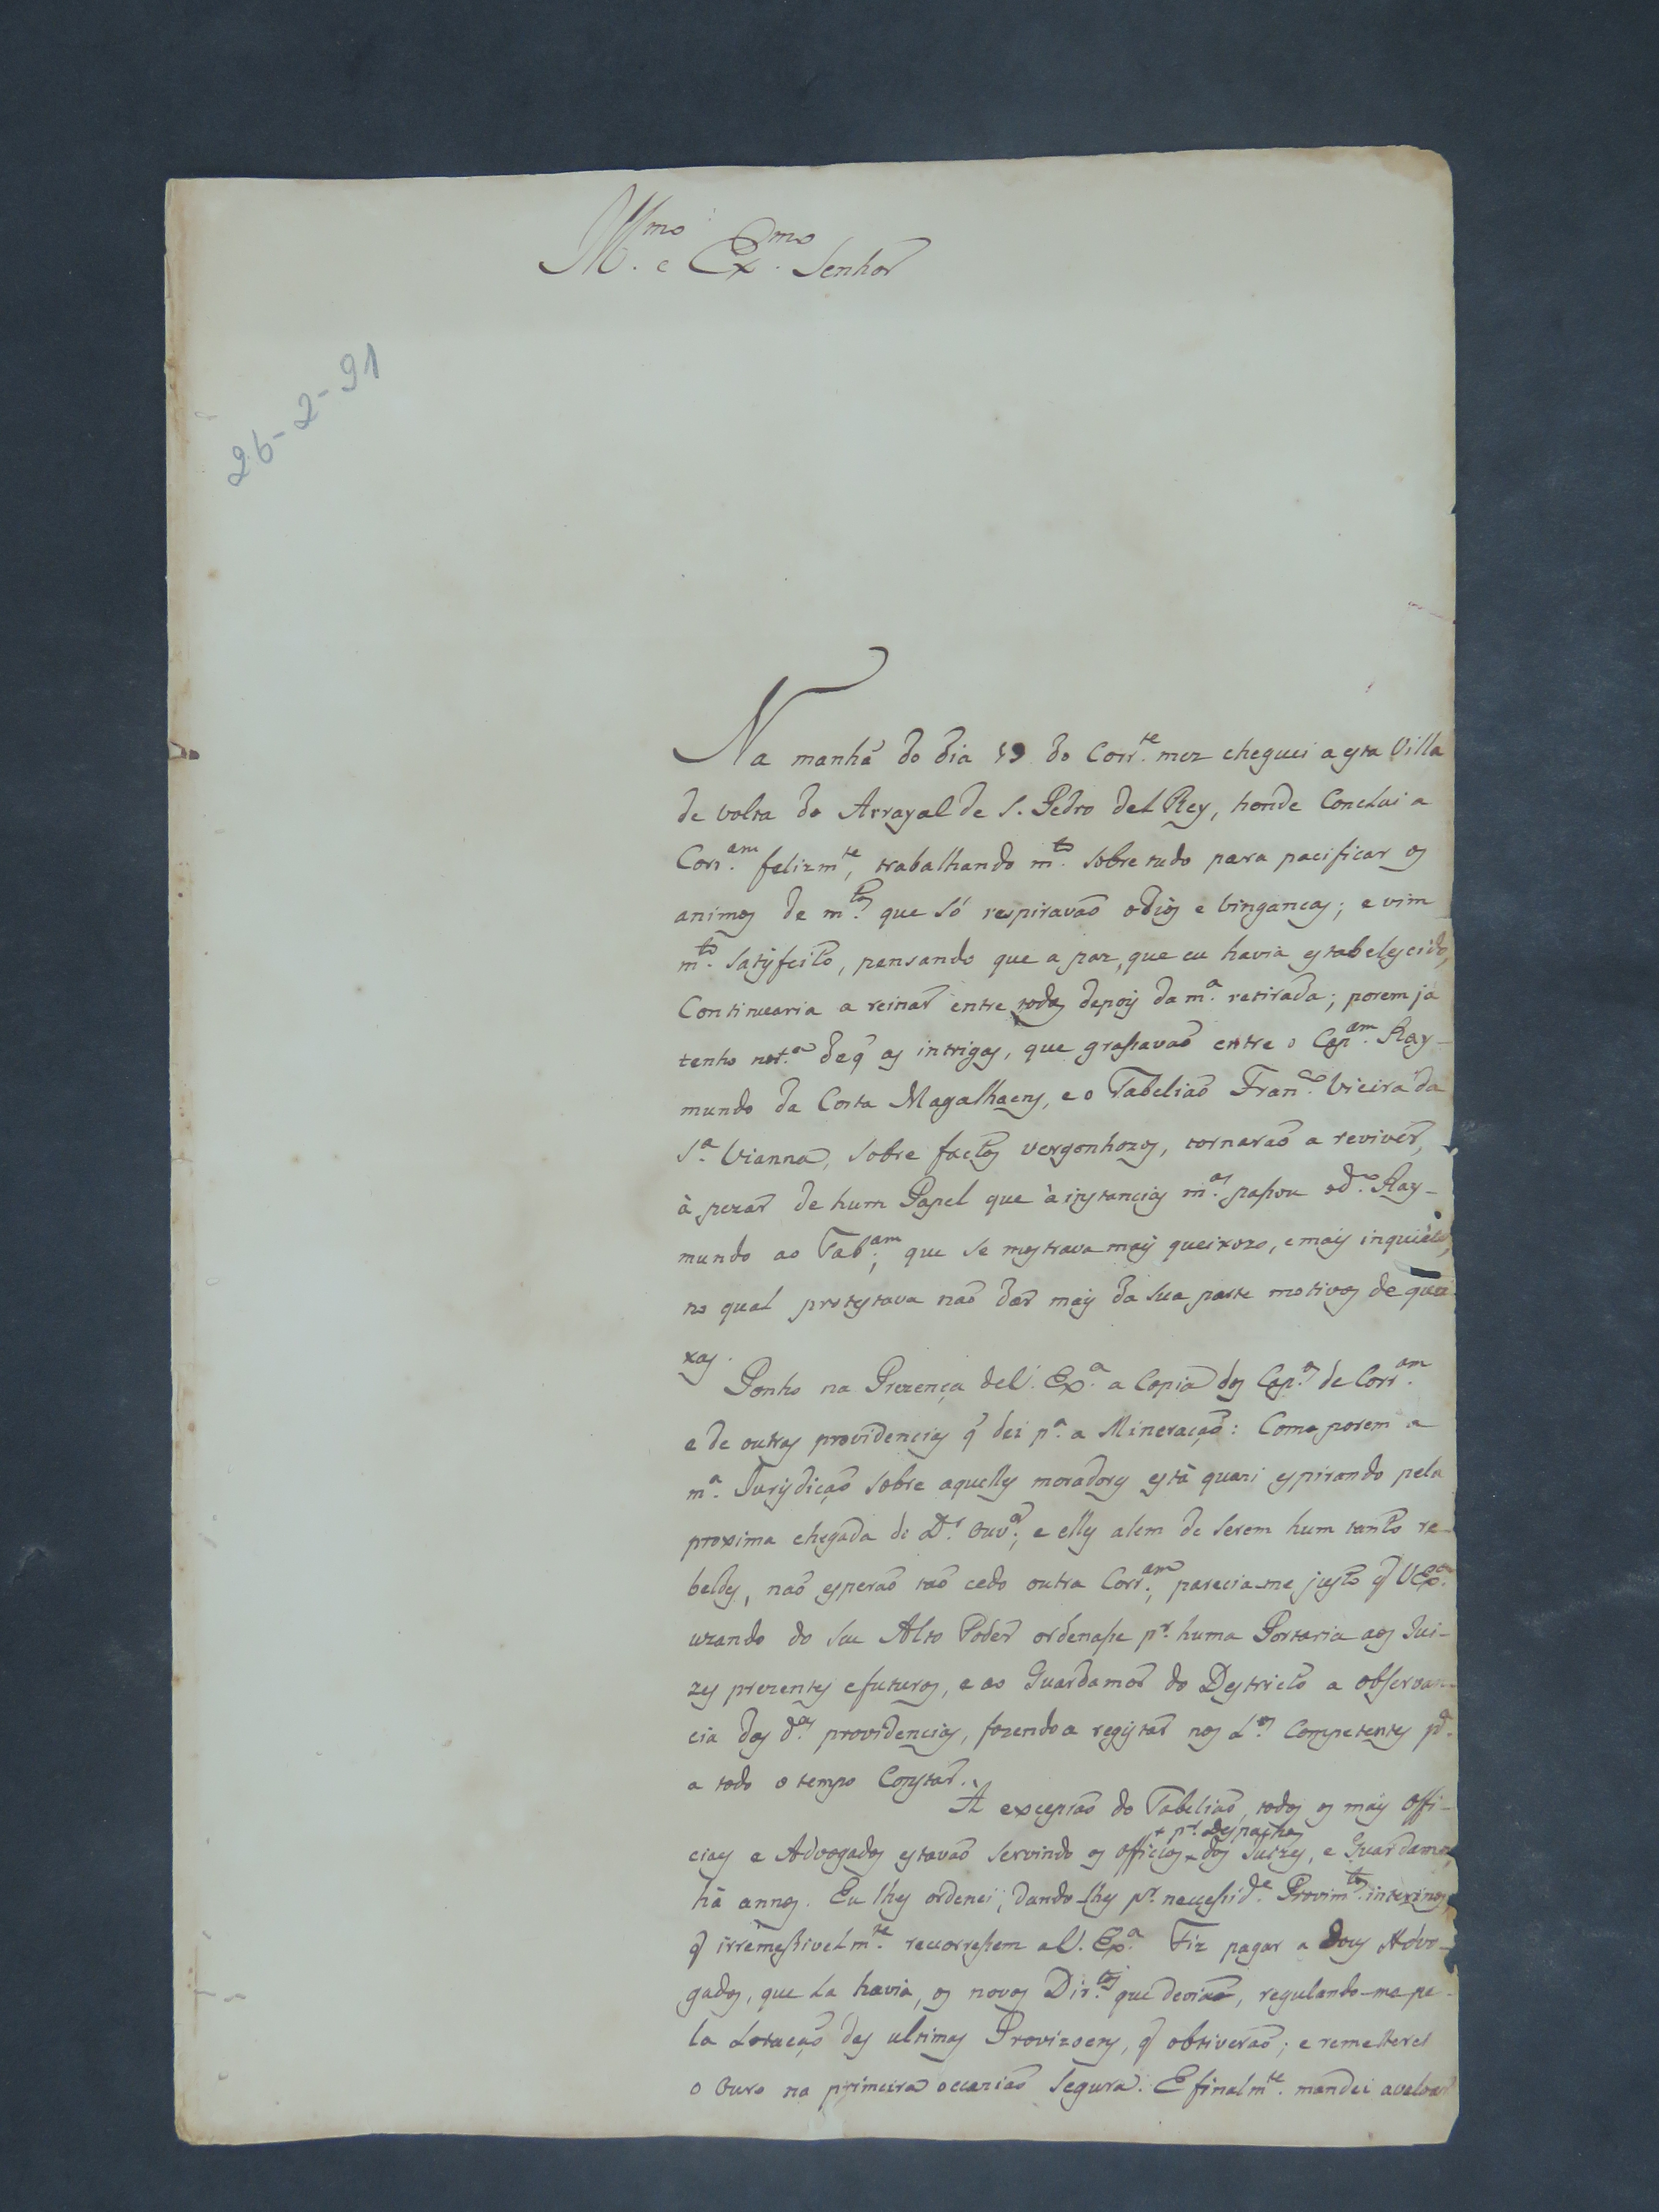 Illmo. e Exmo. Senhor
26-2-91
Na manhã do dia 19 do Corrte. mez cheguei a esta Villa
de volta do Arrayal de S. Pedro del Rey, honde Conclui a
Corram. felizmte, trabalhando mto. sobre tudo para pacificar os
animos de mtos. que só respiravaõ odios e vinganças; e vim
mto. satisfeito, pensando que a paz, que eu havia estabelescido,
Continuaria a reinar entre todos depois da ma. retirada; porem já
tenho nota. de q̃ as intrigas, que grassavaõ entre o Capam. Ray-
mundo da Costa Magalhaens, e o Tabeliaõ Franco. Vieira da
Sa. Vianna, sobre factos vergonhozos, tornaraõ a reviver,
à pezar de hum Papel que à instancias mas. passou o do. Ray-
mundo ao Tabam; que se mostrava mais queixozo, e mais inquieto,
no qual protestava naõ dar mais da sua parte motivos de quei
xas.
Ponho na Prezença de V. Exa. a Copia dos Capos. de Corram.
e de outras providencias q̃ dei pa. a Mineraçaõ: Como porem a
ma. Jurisdicaõ sobre aquelles moradores està quazi espirando pela
proxima chegada do Dr. Ouvor; e elles alem de serem hum tanto re-
beldes, naõ esperaõ taõ cedo outra Corram; parecia-me justo q̃ V Exa.
uzando do seu Alto Poder ordenasse pr. huma Portaria aos Jui-
zes prezentes e futuros, e ao Guardamor do Destricto a observan-
cia das das. providencias, fazendo a registar nos Los. Competentes pa.
a todo o tempo Constar.
À excepsaõ do Tabeliaõ, todos os mais Offi-
+ pr. despachos
ciaes e Advogados estavaõ servindo os Officios + dos Juizes, e Guardamor,
há annos. Eu lhes ordenei, dando-lhes pr. necesside. Provimtos. interinos,
q̃ irremessivelmte. recorressem a V. Exa. Fiz pagar a dous Advo-
gados, que la havia, os novos Dirtos. que deviaõ, regulando-me pe-
la Lotaçaõ das ultimas Provizoens, q̃ obtiveraõ; e remetterei
o Ouro na primeira occaziaõ segura. E finalmte. mandei